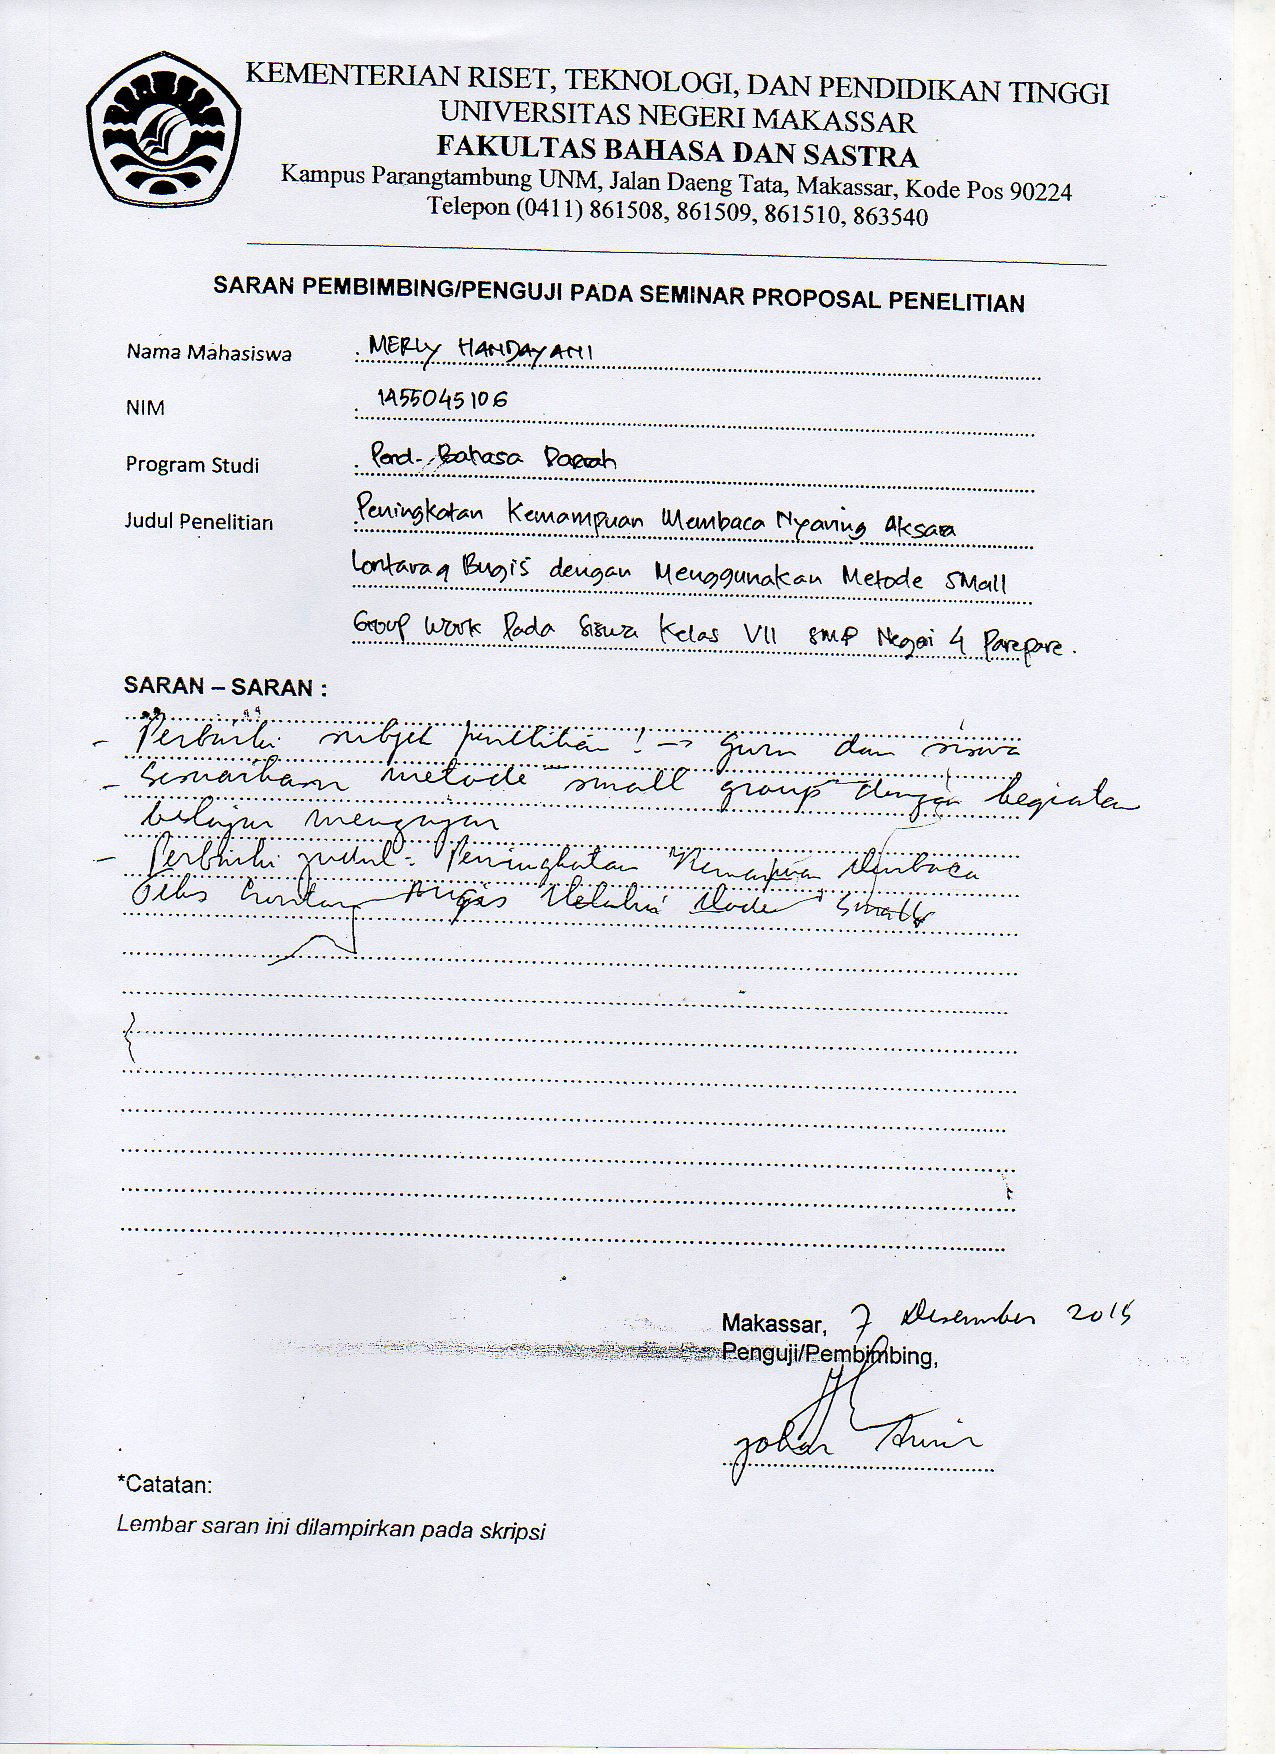 KEMENTERIAN RISET, TEKNOLOGI, DAN PENDIDIKAN TINGGI
UNIVERSITAS NEGERI MAKASSAR
FAKULTAS BAHASA DAN SASTRA
Kampus Parangtambung UNM, Jalan Daeng Tata, Makassar, Kode Pos 90224
Telepon (0411) 861508, 861509, 861510, 863540
SARAN PEMBIMBING/PENGUJI PADA SEMINAR PROPOSAL PENELITIAN
Nama Mahasiswa : MERLY HANDAYANI
NIM : 1455045106
Program Studi : Pend. Bahasa Daerah
Judul Penelitian : Peningkatan Kemampuan Membaca Nyaring Aksara
Lontaraq Bugis dengan Menggunakan Metode Small
Group Work Pada Siswa Kelas VII SMP Negeri 4 Parepare.
SARAN – SARAN :
- Perbaiki subjek penelitian! → guru dan siswa
- Sesuaikan metode small group dengan kegiatan
belajar mengajar
- Perbaiki judul: Peningkatan Kemampuan Membaca
Teks Lontaraq Bugis Melalui Small
Makassar, 7 Desember 2015
Penguji/Pembimbing,
Johar Amir
*Catatan:
Lembar saran ini dilampirkan pada skripsi